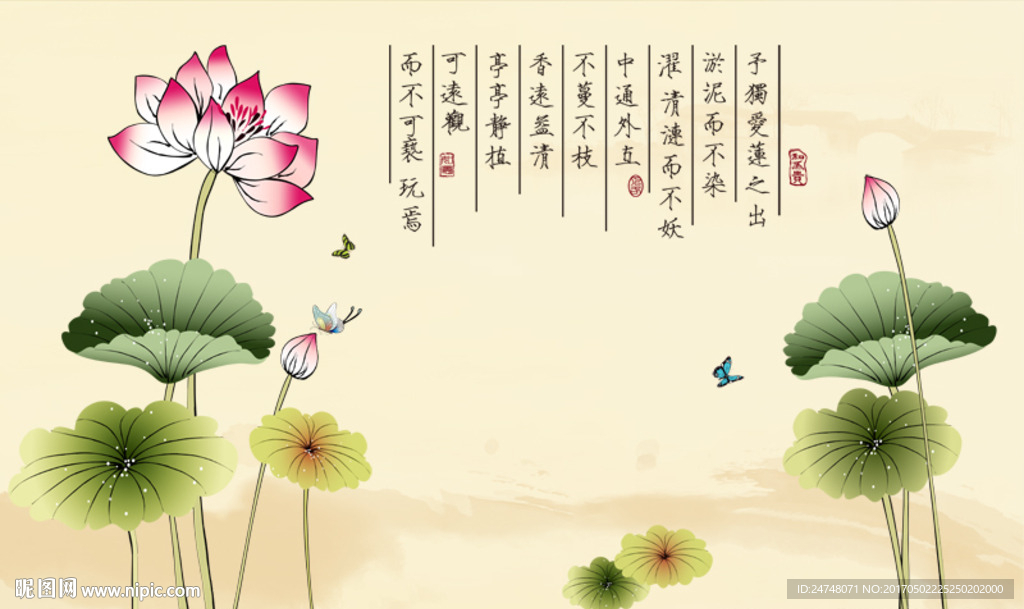 予獨愛蓮之出
淤泥而不染
濯清漣而不妖
中通外直
不蔓不枝
香遠益清
亭亭靜植
可遠觀
而不可褻玩焉
昵图网 www.nipic.com
ID:24748071 NO:20170502225250202000